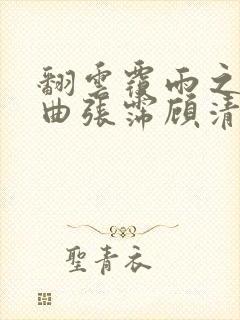 翻雲覆雨之
曲張霈顧清
聖青衣